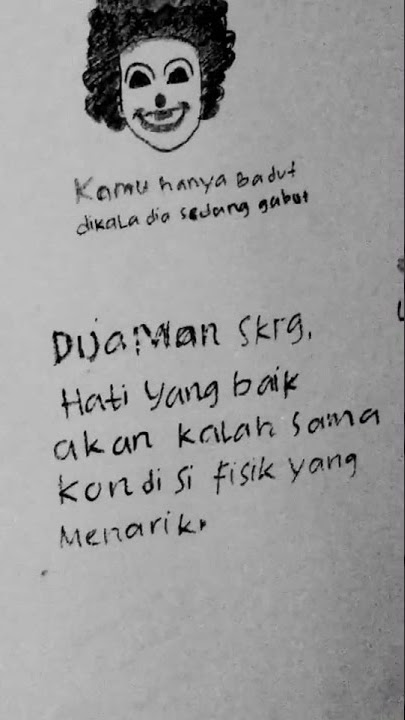 Kamu hanya Badut
dikala dia sedang gabut
Dijaman skrg,
Hati yang baik
akan kalah sama
kondisi fisik yang
Menarik.